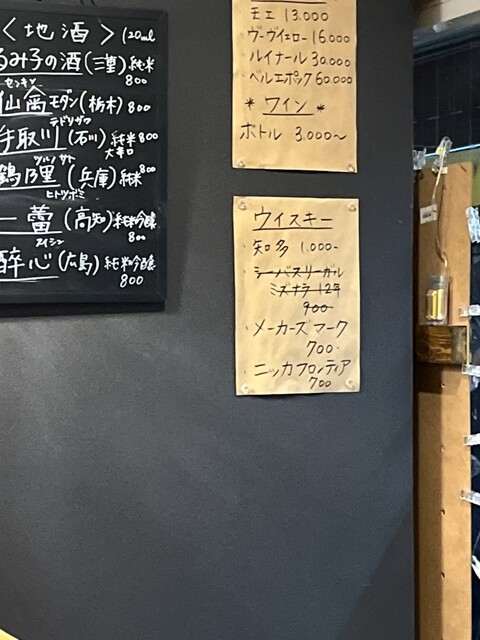 <地酒> 120ml
るみ子の酒(三重)純米
800
センキン
仙禽モダン(栃木)800
テドリガワ
手取川(石川)純米800
大辛口
ツルノサト
鶴乃里(兵庫)純米800
ヒトツボミ
一蕾(高知)純米吟醸
800
スイシン
酔心(広島)純米吟醸
800
モエ 13.000
ヴーヴイエロー 16.000
ルイナール 30.000
ベルエポック 60.000
* ワイン *
ボトル 3.000~
ウイスキー
・知多 1.000-
・シーバスリーガル
ミズナラ 12年
900-
・メーカーズマーク
700-
・ニッカフロンティア
700